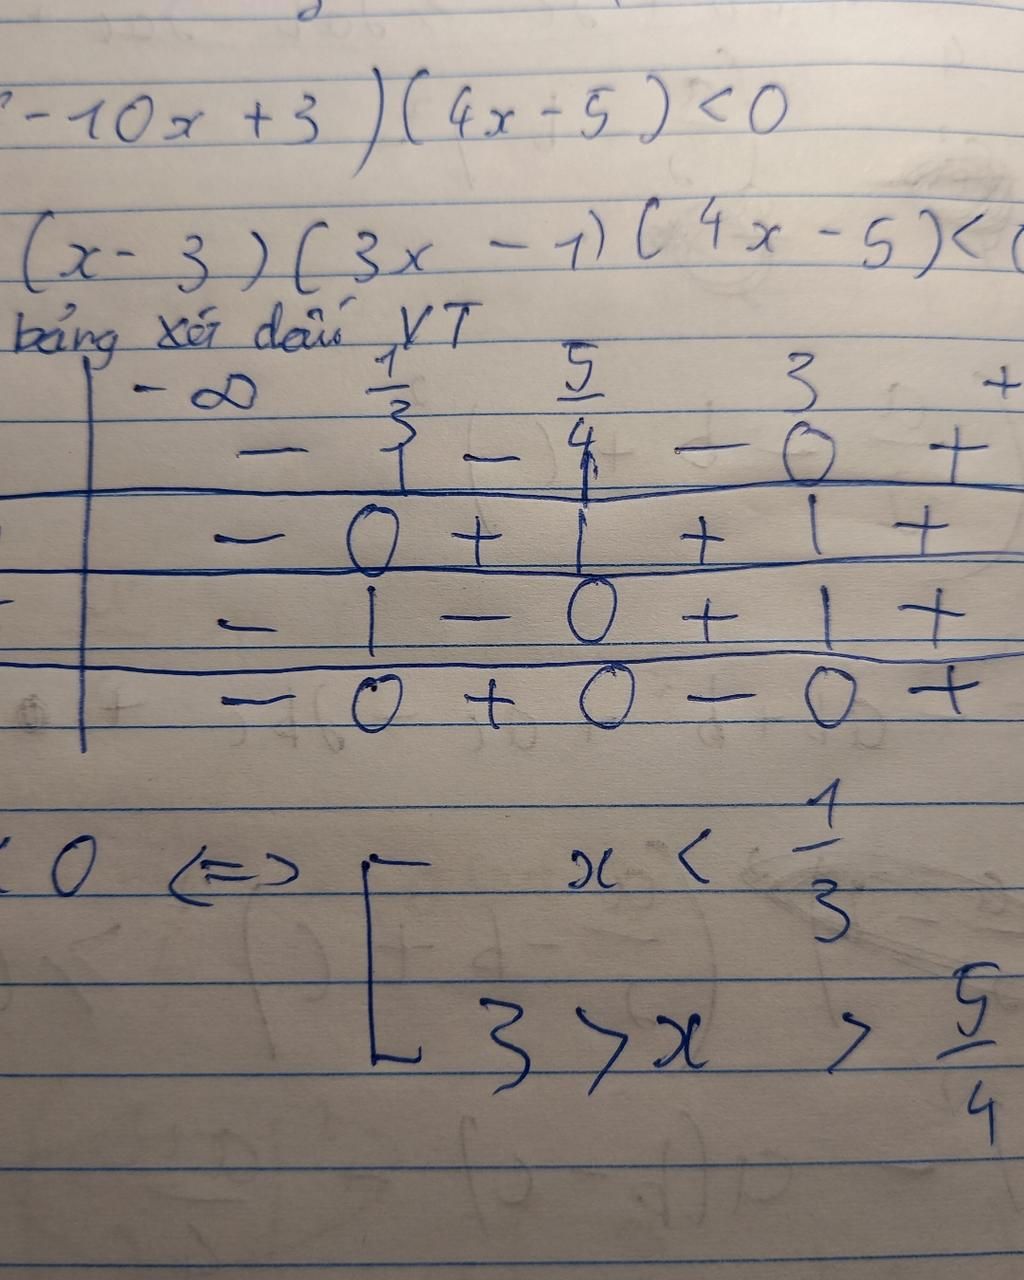 -10x + 3)(4x - 5) < 0
(x - 3)(3x - 1)(4x - 5) <
bảng xét dấu VT
-∞ 1/3 5/4 3 +
- | - | - 0 +
- 0 + | + | +
- | - 0 + | +
- 0 + 0 - 0 +
< 0 <=> [ x < 1/3
3 > x > 5/4